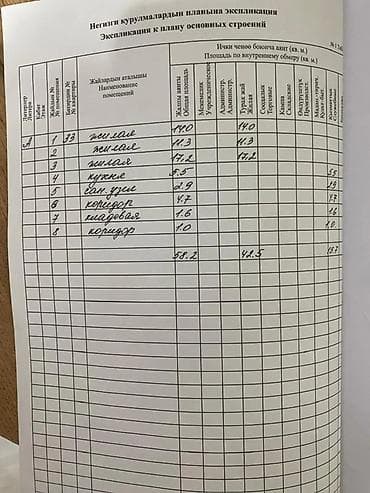 Негизги курулмалардын планына экспликация
Экспликация к плану основных строений
Ички ченөө боюнча аянт (кв. м.)
Площадь по внутреннему обмеру (кв. м.)
Литерлер
Литера
Кабат
Этаж
Жайдын №
№ помещения
Батирдин №
№ квартиры
Жайлардын аталышы
Наименование
помещений
Жалпы аянты
Общая площадь
Мекемелик
Учрежденческие
Администр.
Администр.
Турак жай
Жилая
Социалык
Торговые
Кампа
Складские
Өндүрүштүк
Производст.
А 1 33 жилая 14.0 14.0
2 жилая 11.3 11.3
3 жилая 17.2 17.2
4 кухня 5.5 5.5
5 сан. узел 2.9 2.9
6 коридор 4.7 4.7
7 кладовая 1.6 1.6
8 коридор 1.0 1.0
58.2 42.5 15.7